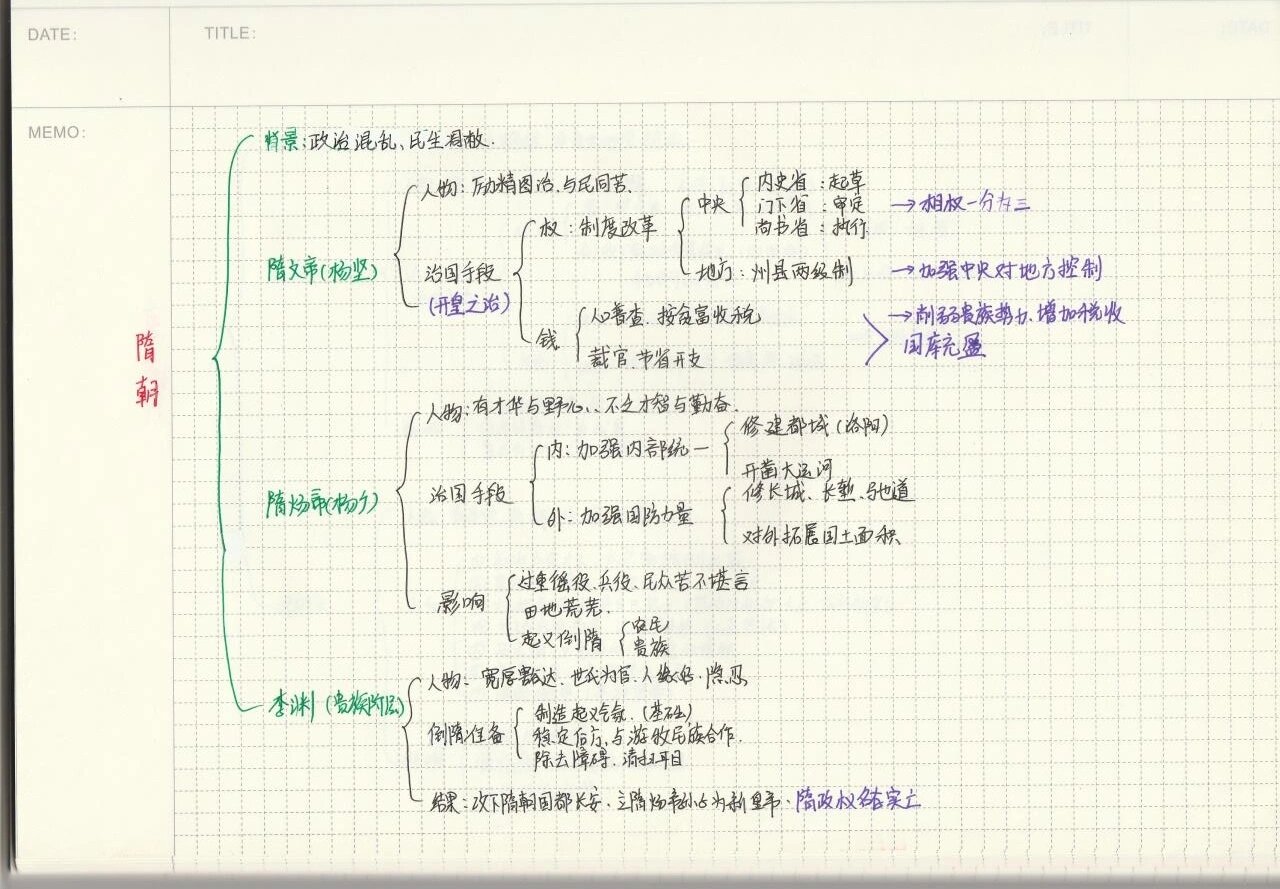 DATE:
TITLE:
MEMO:
隋朝
背景:政治混乱、民生凋敝.
隋文帝(杨坚)
人物:励精图治、与民同苦.
治国手段
(开皇之治)
权:制度改革
中央
内史省:起草
门下省:审定
尚书省:执行
→相权一分为三
地方:州县两级制
→加强中央对地方控制
钱
人口普查、按贫富收税
裁官、节省开支
→削弱贵族势力、增加税收
国库充盈
隋炀帝(杨广)
人物:有才华与野心、不乏才智与勤奋.
治国手段
内:加强内部统一
修建都城(洛阳)
开凿大运河
外:加强国防力量
修长城、长堑、驰道
对外拓展国土面积
影响
过重徭役、兵役、民众苦不堪言
田地荒芜.
起义倒隋
农民
贵族
李渊(贵族阶层)
人物:宽厚豁达、世代为官、人缘好、隐忍
倒隋准备
制造起义气氛.(基础)
稳定后方、与游牧民族合作.
除去障碍、清扫耳目
结果:攻下隋朝国都长安、立隋炀帝孙为新皇帝、隋政权名存实亡